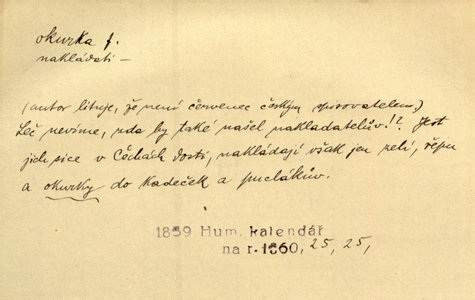 okurka f.
nakládati —
(autor lituje, že není červenec českým spisovatelem,)
Leč nevíme, zda by také našel nakladatelův!? Jest
jich sice v Čechách dosti, nakládají však jen zelí, řepu
a okurky do kadeček a puclákův.
1859 Hum. kalendář
na r. 1860, 25, 25,